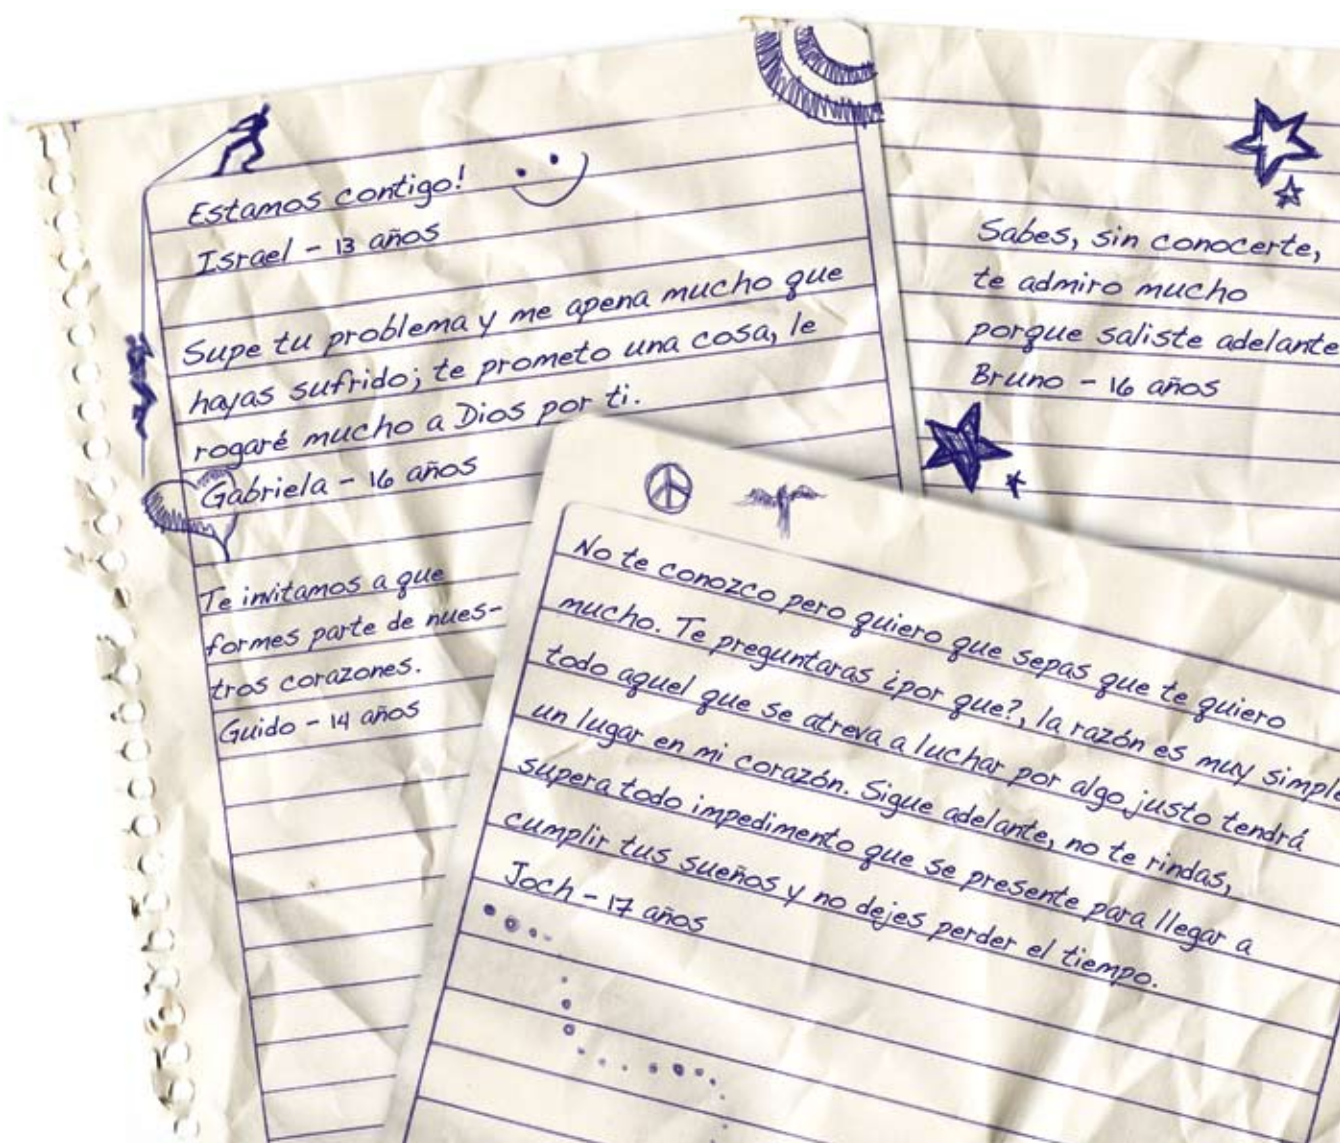 Estamos contigo!
Israel - 13 años
Supe tu problema y me apena mucho que
hayas sufrido; te prometo una cosa, le
rogaré mucho a Dios por ti.
Gabriela - 16 años
Te invitamos a que
formes parte de nues-
tros corazones.
Guido - 14 años
Sabes, sin conocerte,
te admiro mucho
porque saliste adelante
Bruno - 16 años
No te conozco pero quiero que sepas que te quiero
mucho. Te preguntaras ¿por que?, la razón es muy simple
todo aquel que se atreva a luchar por algo justo tendrá
un lugar en mi corazón. Sigue adelante, no te rindas,
supera todo impedimento que se presente para llegar a
cumplir tus sueños y no dejes perder el tiempo.
Joch - 17 años